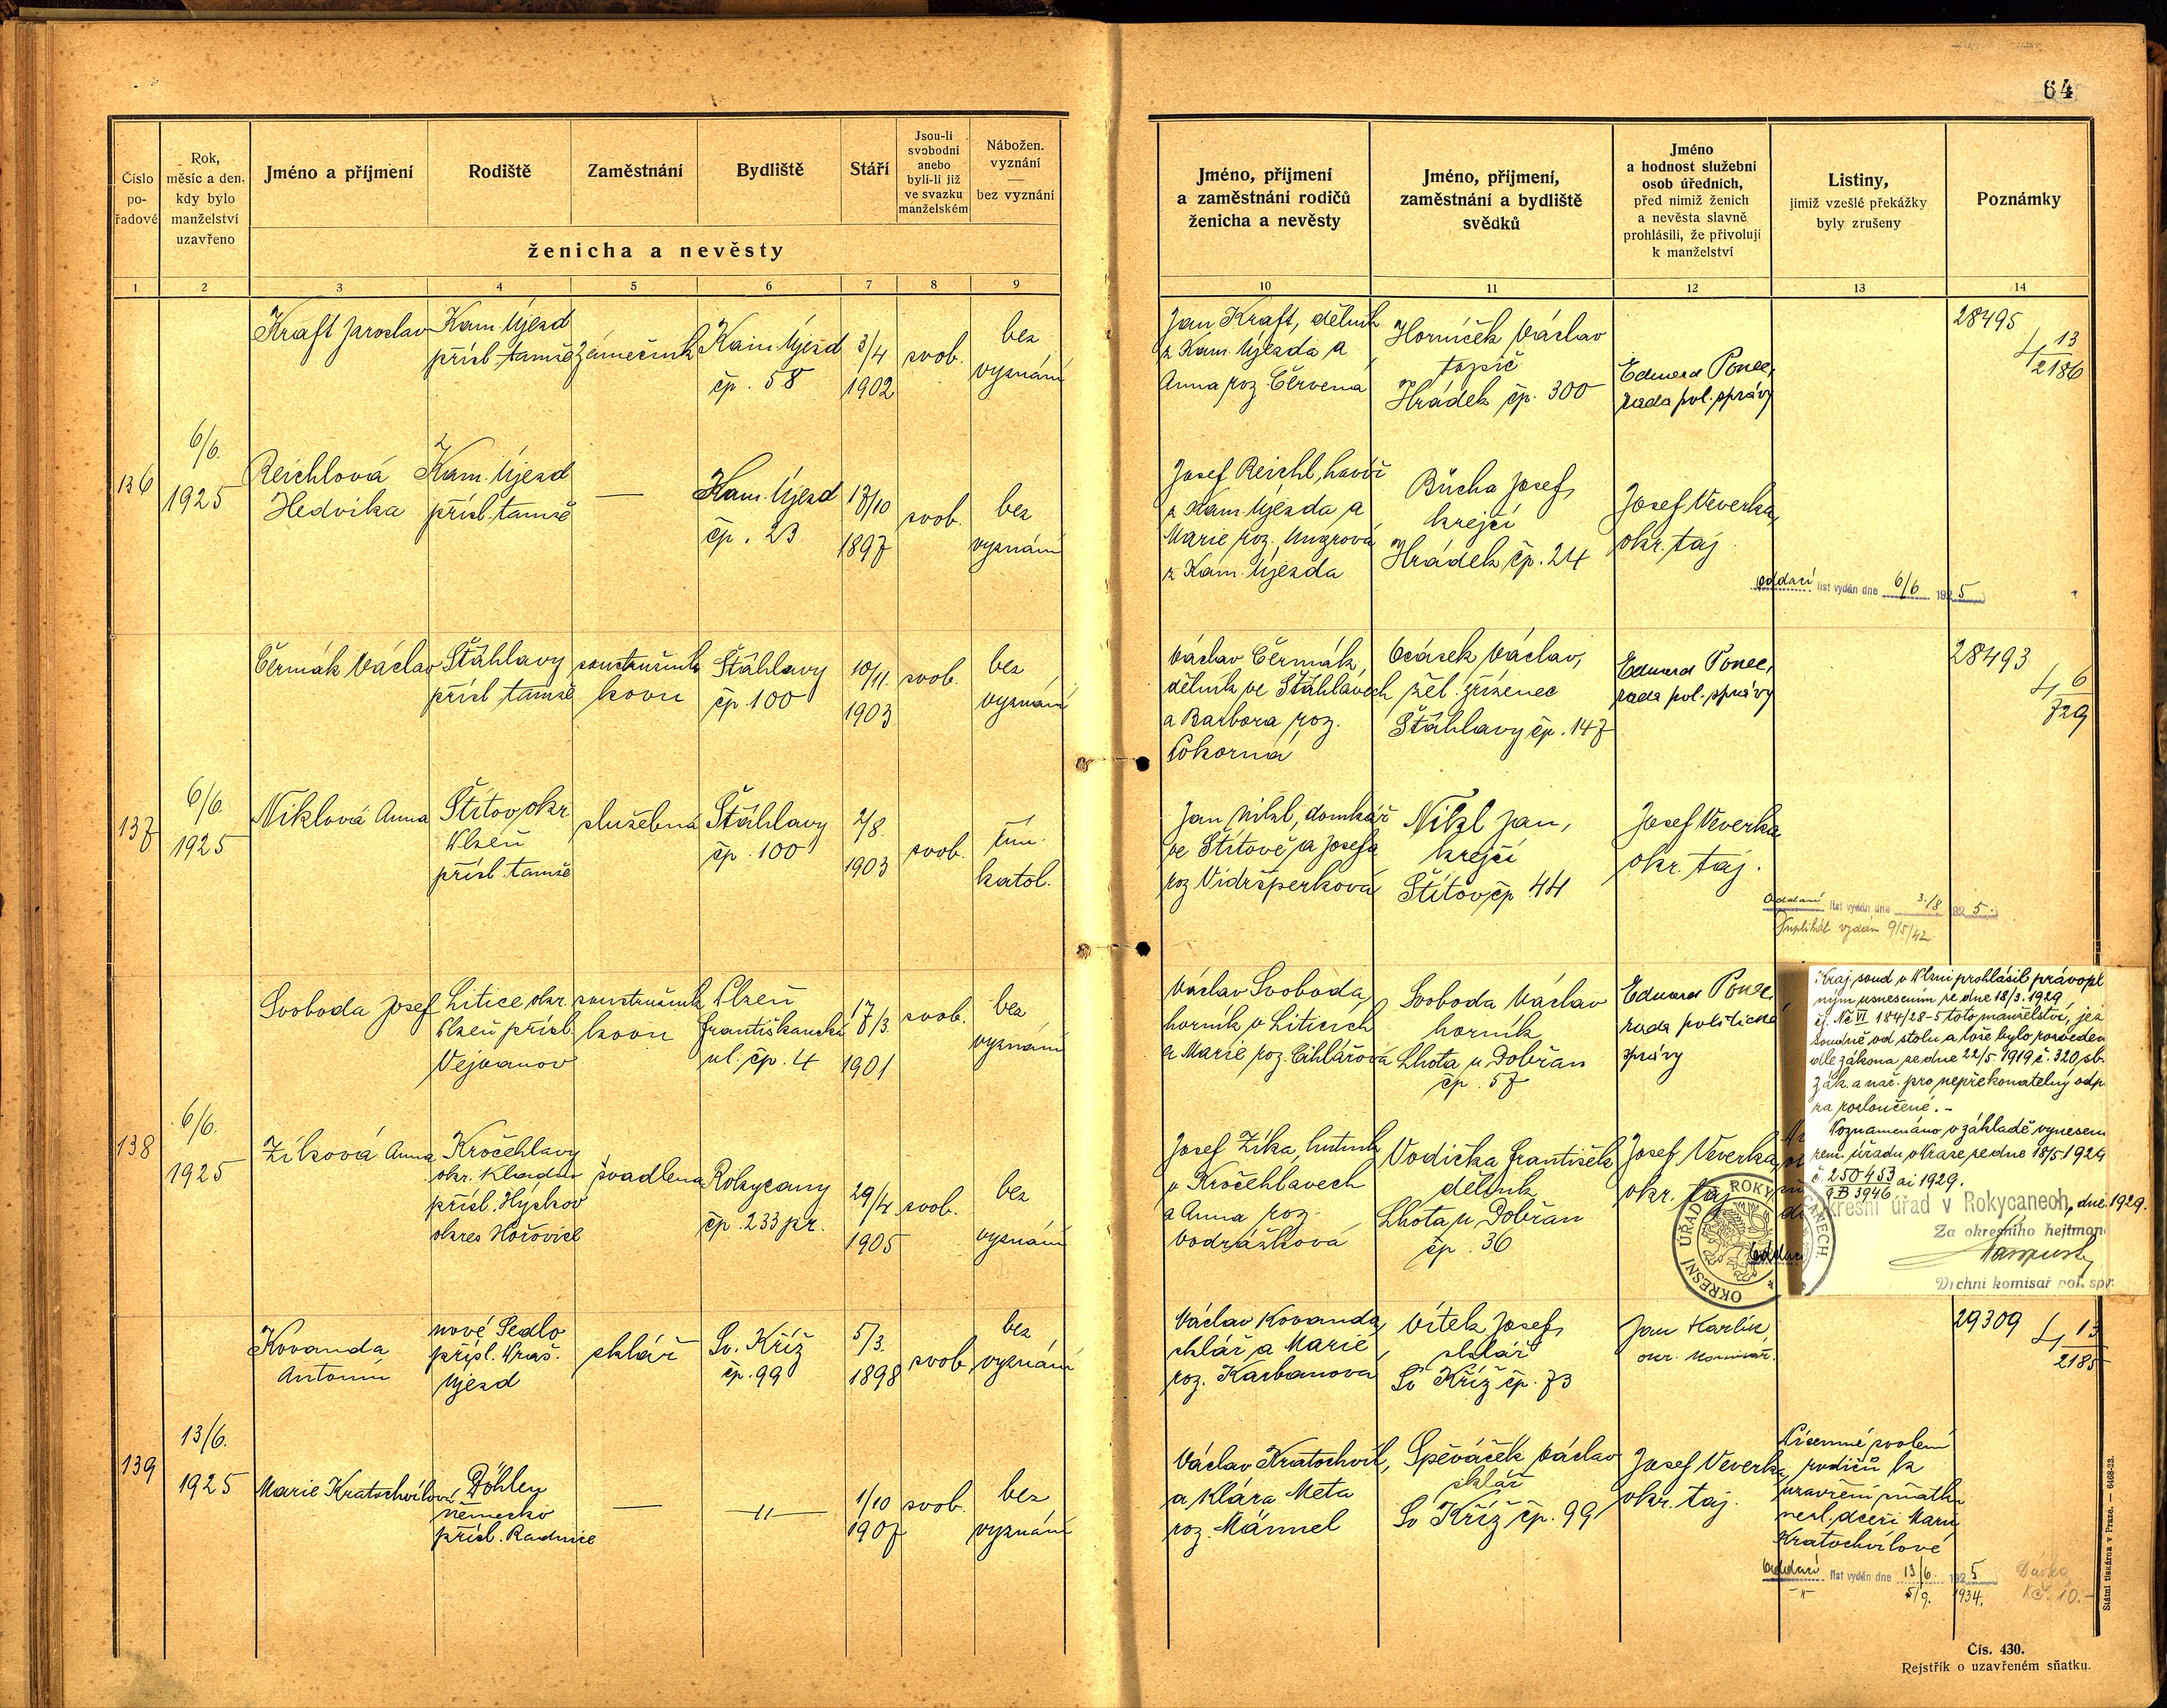 64
Číslo
po-
řadové
Rok,
měsíc a den,
kdy bylo
manželství
uzavřeno
Jméno a příjmení
Rodiště
Zaměstnání
Bydliště
Stáří
Jsou-li
svobodni
anebo
byli-li již
ve svazku
manželském
Nábožen.
vyznání
—
bez vyznání
ženicha a nevěsty
Jméno, příjmení
a zaměstnání rodičů
ženicha a nevěsty
Jméno, příjmení,
zaměstnání a bydliště
svědků
Jméno
a hodnost služební
osob úředních,
před nimiž ženich
a nevěsta slavně
prohlásili, že přivolují
k manželství
Listiny,
jimiž vzešlé překážky
byly zrušeny
Poznámky
1 2 3 4 5 6 7 8 9 10 11 12 13 14
136
6/6.
1925
Kraft Jaroslav
Kam. Újezd
přísl. tamže
zámečník
Kam. Újezd
čp. 58
3/4
1902
svob.
bez
vyznání
Jan Kraft, dělník
z Kam. Újezda a
Anna roz. Červená
Horníček Václav
topič
Hrádek čp. 300
Eduard Ponec,
rada pol. správy
28495
13
2186
Reichlová
Hedvika
Kam. Újezd
přísl. tamže
—
Kam. Újezd
čp. 23
17/10
1897
svob.
bez
vyznání
Josef Reichl, havíř
z Kam. Újezda a
Marie roz. Ungrová
z Kam. Újezda
Bůcha Josef,
krejčí
Hrádek čp. 24
Josef Veverka,
okr. taj.
oddací list vydán dne 6/6 1925
137
6/6.
1925
Čermák Václav
Šťáhlavy
přísl. tamže
soustružník
kovu
Šťáhlavy
čp. 100
10/11
1903
svob.
bez
vyznání
Václav Čermák,
dělník ve Šťáhlavech
a Barbora roz.
Pokorná
Ocásek Václav,
žel. zřízenec
Šťáhlavy čp. 147
Eduard Ponec,
rada pol. správy
28493
6
729
Niklová Anna
Štítov, okr.
Plzeň
přísl. tamže
služebná
Šťáhlavy
čp. 100
2/8.
1903
svob.
řím.
katol.
Jan Nikl, domkář
ve Štítově a Josefa
roz. Vidršperková
Nikl Jan,
krejčí
Štítov čp. 44
Josef Veverka
okr. taj.
Oddací list vydán dne 3./8 1925.
Duplikát vydán 9/5/42.
138
6/6.
1925
Svoboda Josef
Litice okr.
Plzeň přísl.
Vejvanov
soustružník
kovu
Plzeň
Františkanská
ul. čp. 4
17/3.
1901
svob.
bez
vyznání
Václav Svoboda,
horník v Liticích
a Marie roz. Cihlářová
Svoboda Václav
horník
Lhota u Dobřan
čp. 57
Eduard Ponec,
rada politické
správy
Zíková Anna
Kročehlavy
okr. Kladno
přísl. Hýskov
okres Hořovice
švadlena
Rokycany
čp. 233 pr.
29/4
1905
svob.
bez
vyznání
Josef Zíka, hutník
v Kročehlavech
a Anna roz.
Vodrážková
Vodička František
dělník
Lhota u Dobřan
čp. 36
Josef Veverka,
okr. taj.
Kraj. soud v Plzni prohlásil právopl
ným usnesením ze dne 18/3. 1929
čj. Nč VI 184/28-5 toto manželství, jež
soudně od stolu a lože bylo rozvedeno
dle zákona ze dne 22/5 1919 č. 320 sb.
zák. a nař. pro nepřekonatelný odp
za rozloučené. -
Poznamenáno v základě vynesení
zem. úřadu v Praze ze dne 18/5 1929
č. 250453 ai 1929.
9B 3946
kresní úřad v Rokycanech, dne 1929.
Za okresního hejtman
Vrchní komisař pol. spr.
OKRESNÍ ÚŘAD ROKYCANECH
Oddací
139
13/6.
1925
Kovanda
Antonín
nové Sedlo
přísl. Mraš.
Újezd
sklář
Sv. Kříž
čp. 99
5/3.
1898
svob.
bez
vyznání
Václav Kovanda,
sklář a Marie
roz. Karbanová
Vítek Josef,
sklář
Sv Kříž čp. 73
Jan Karlík,
okr. komisař.
29309
13
2185
Marie Kratochvílová
Döhlen
německo
přísl. Radnice
—
—"—
1/10
1907
svob.
bez
vyznání
Václav Kratochvíl,
a Klára Meta
roz. Männel
Spěváček Václav
sklář
Sv Kříž čp. 99
Josef Veverka,
okr. taj.
Písemné svolení
rodičů k
uzavření sňatku
nezl. dceři Marii
Kratochvílové
Oddací list vydán dne 13/6. 1925
—"— 5/9. 1934.
Dávka
Kč. 10.-
Státní tiskárna v Praze. — 6468-23.
Čís. 430.
Rejstřík o uzavřeném sňatku.